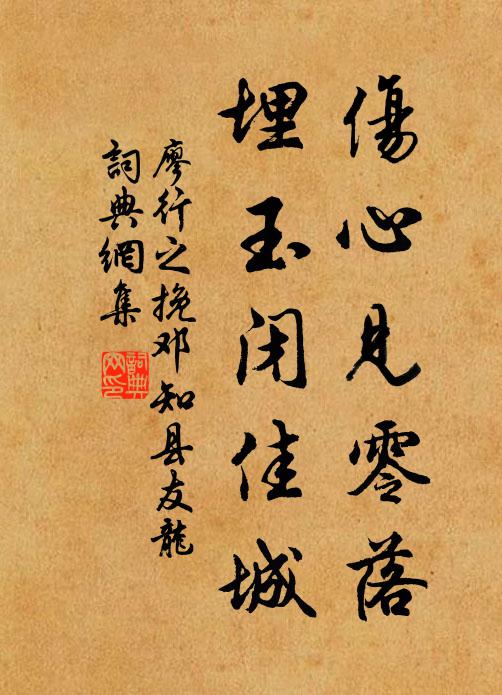 傷心見零落
埋玉闭佳城
廖行之挽邓知县友龍
詞典網集
詞典
网印